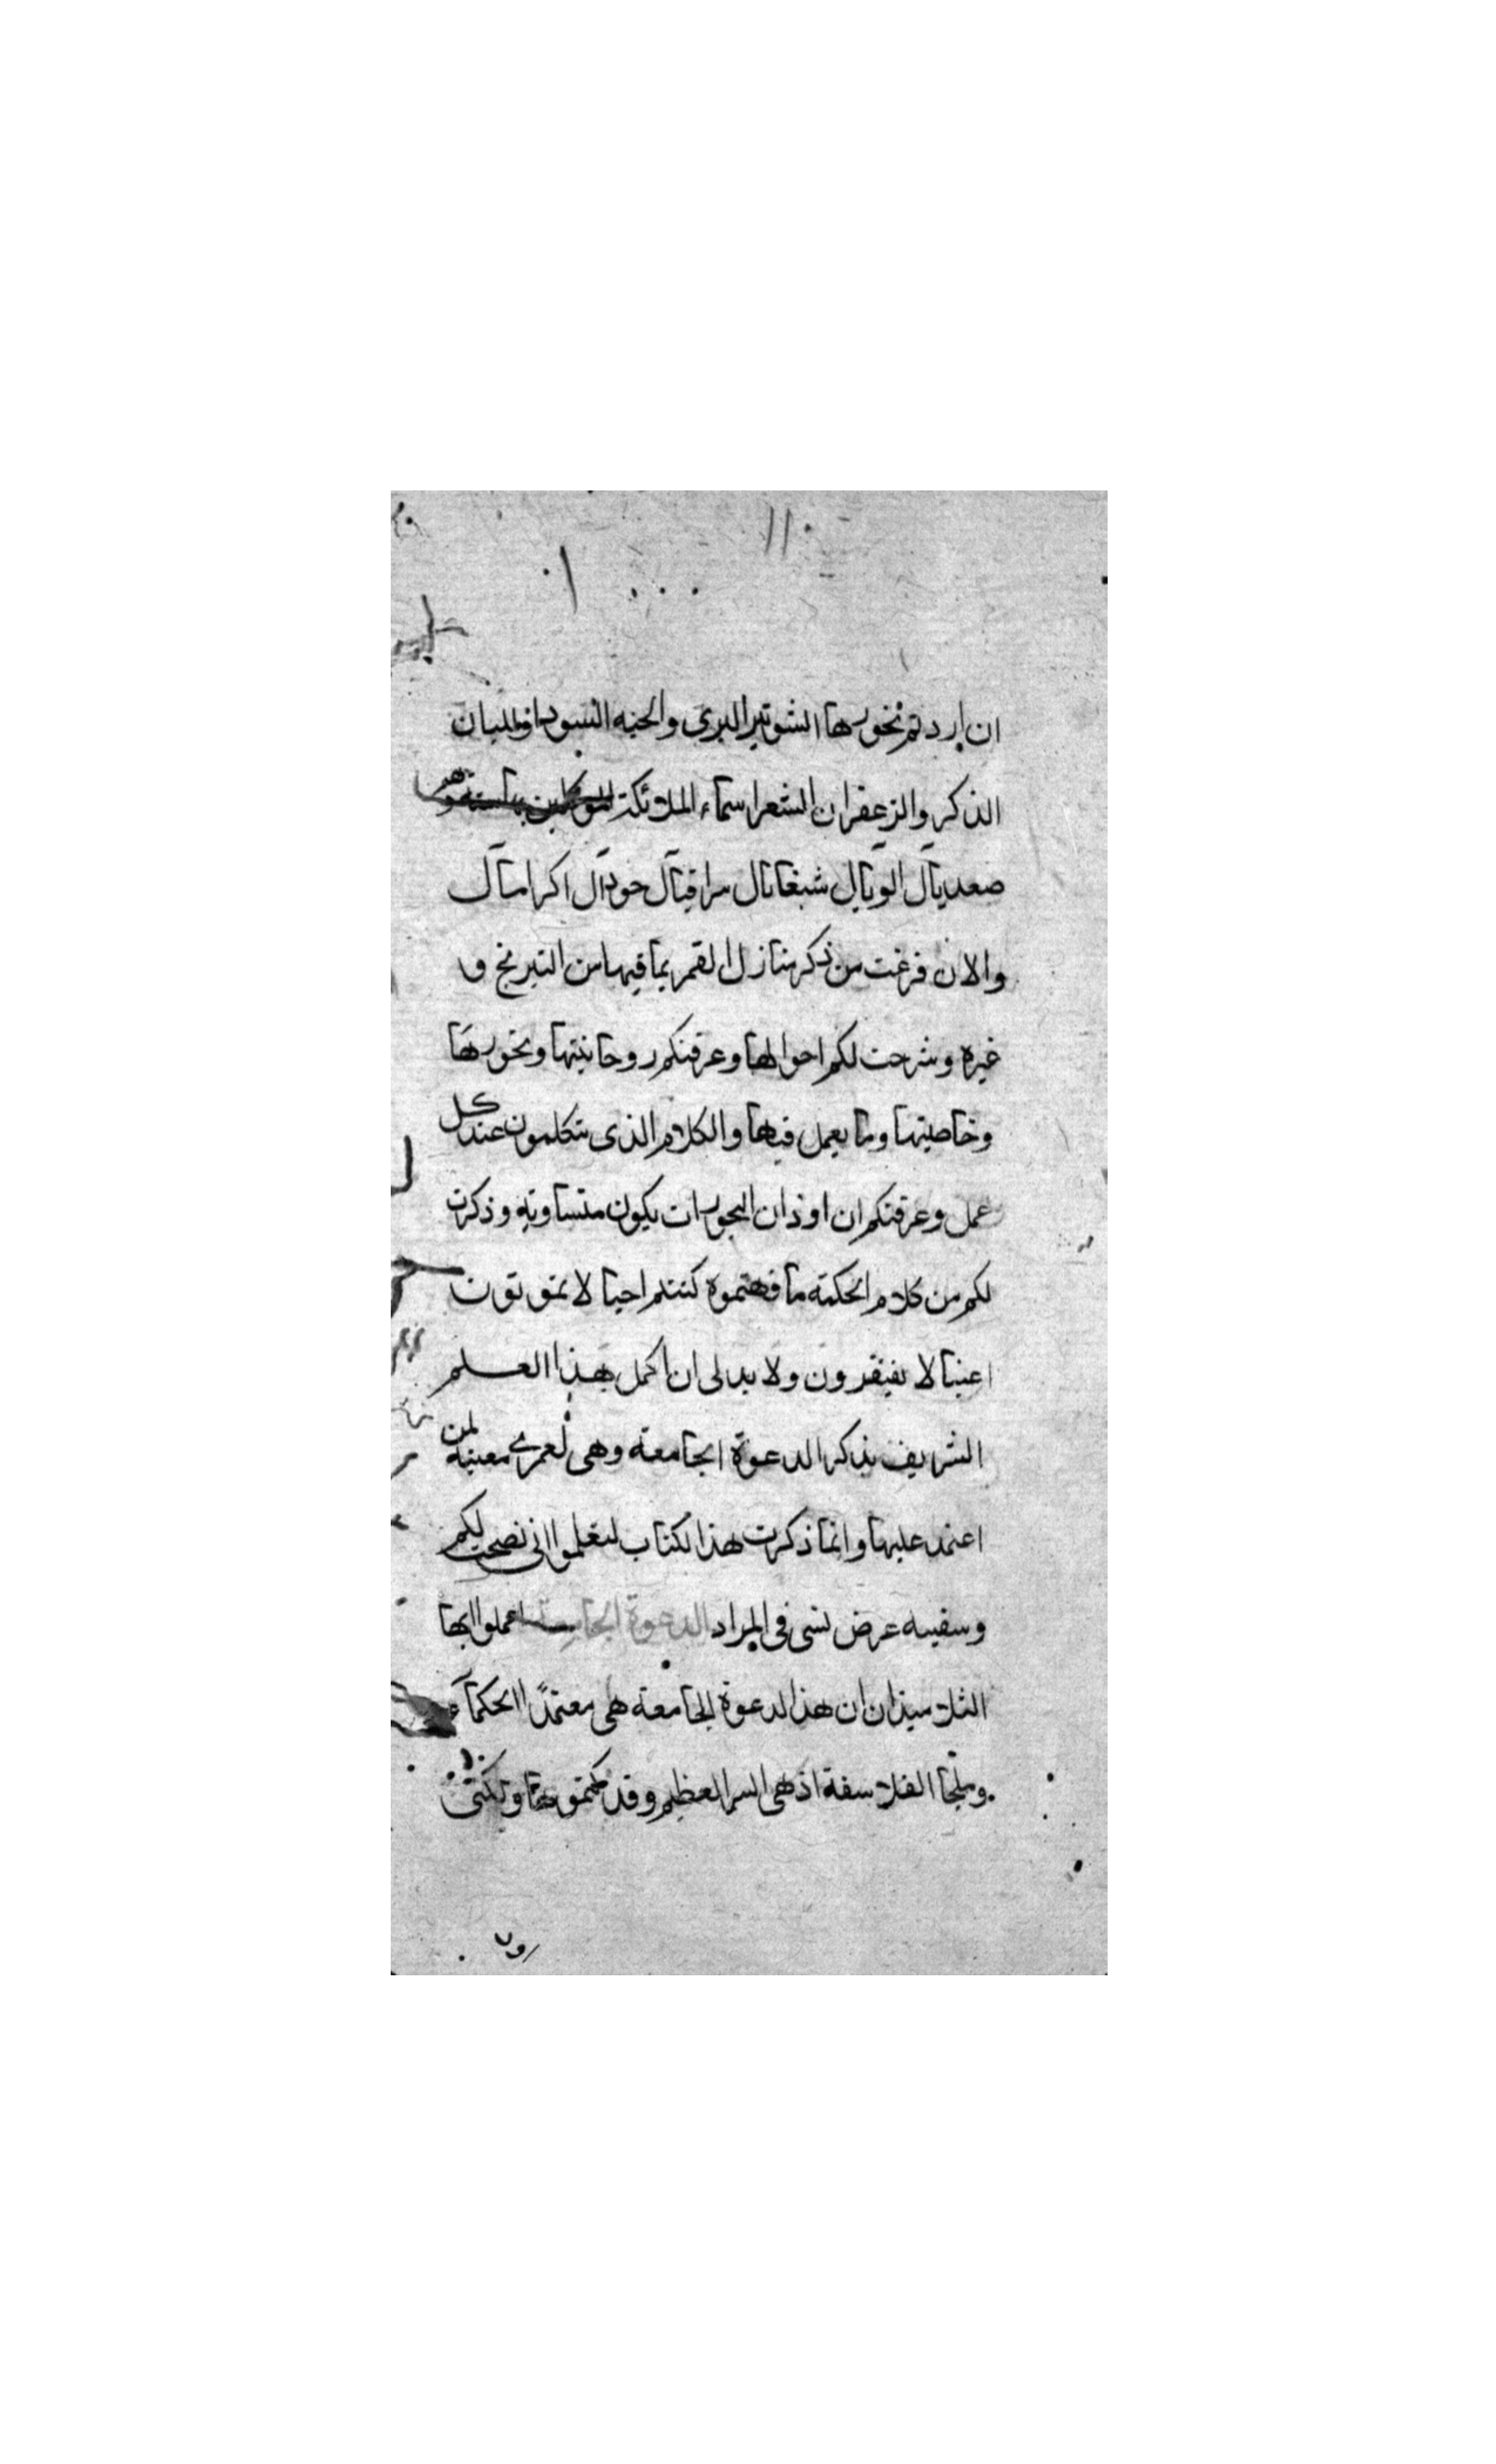 ان اردتم بخورها الشونيز البري والحبه السودا واللبان
الذكر والزعفران الشعر اسماء الملائكة الموكلين بها ستة وهم
صعديائل الويائل شبغائل سراقيائل حودائل اكرامائل
والان فرغت من ذكر منازل القمر بما فيها من النيرنج و
غيره وشرحت لكم احوالها وعرفتكم روحانيتها وبخورها
وخاصيتها وما يعمل فيها والكلام الذى تتكلمون عند كل
عمل وعرفتكم ان اوزان البخورات يكون متساويه وذكرت
لكم من كلام الحكمة ما فهمتموه كنتم احيا لا تموتون
اغنيا لا تفتقرون ولا بد لى ان اكمل هذا العلم
الشريف بذكر الدعوة الجامعة وهى لعمرى معينه لمن
اعتمد عليها وانما ذكرت هذا لكتاب لتعلموا انى نصحت لكم
عرض فى المراد الدعوة الجامعة اعملوا ايها
التلاميذ ان ان هذا لدعوة الجامعة هى معتمد الحكماء
وملجا الفلاسفة اذ هى السر العظيم وقد كتموها